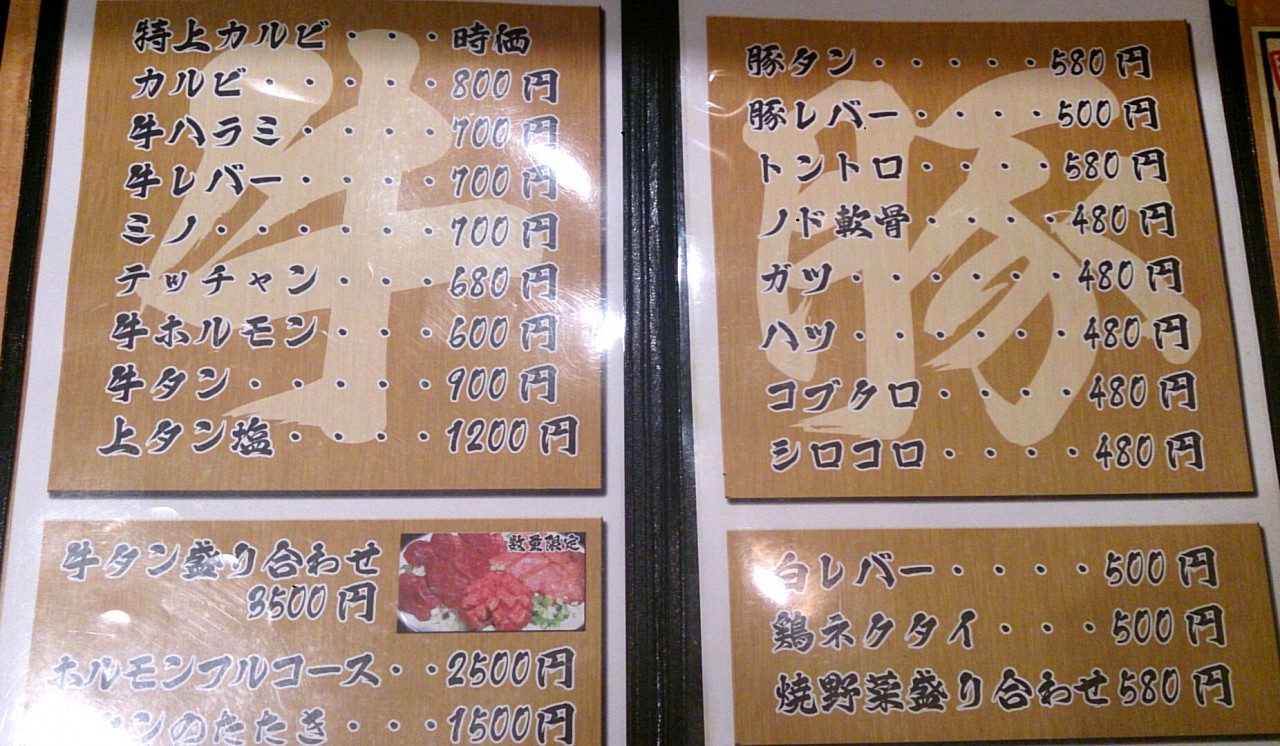 特上カルビ・・・時価
カルビ・・・・・800円
牛ハラミ・・・・700円
牛レバー・・・・700円
ミノ・・・・・・700円
テッチャン・・・680円
牛ホルモン・・・600円
牛タン・・・・・900円
上タン塩・・・・1200円
牛
牛タン盛り合わせ
3500円
数量限定
ホルモンフルコース・・2500円
ンのたたき・・・1500円
豚タン・・・・・580円
豚レバー・・・・500円
トントロ・・・・580円
ノド軟骨・・・・480円
ガツ・・・・・・480円
ハツ・・・・・・480円
コブクロ・・・・480円
シロコロ・・・・480円
豚
白レバー・・・・500円
鶏ネクタイ・・・500円
焼野菜盛り合わせ580円